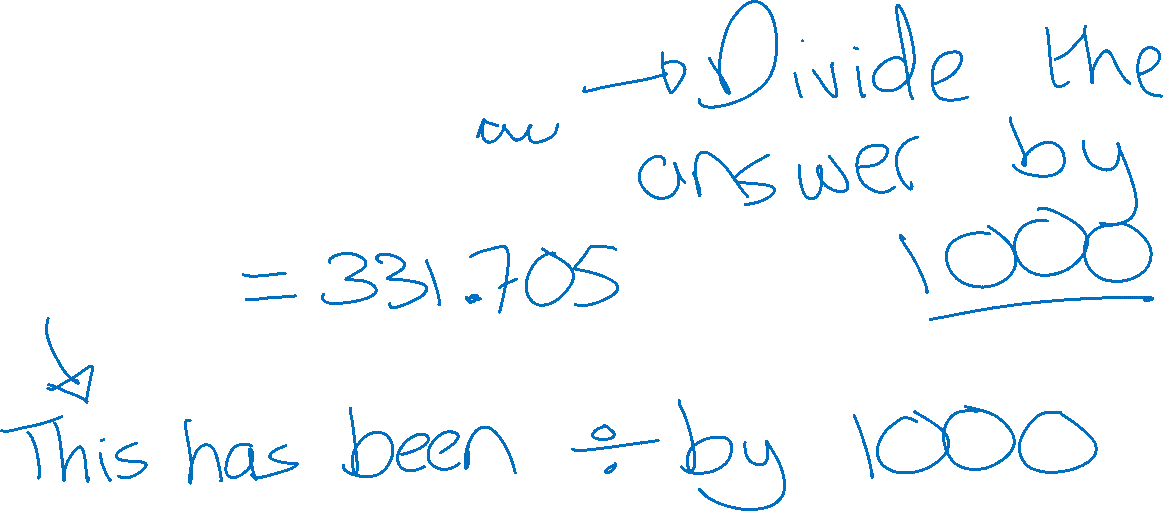 → Divide the
answer by
1000
= 331.705
This has been ÷ by 1000